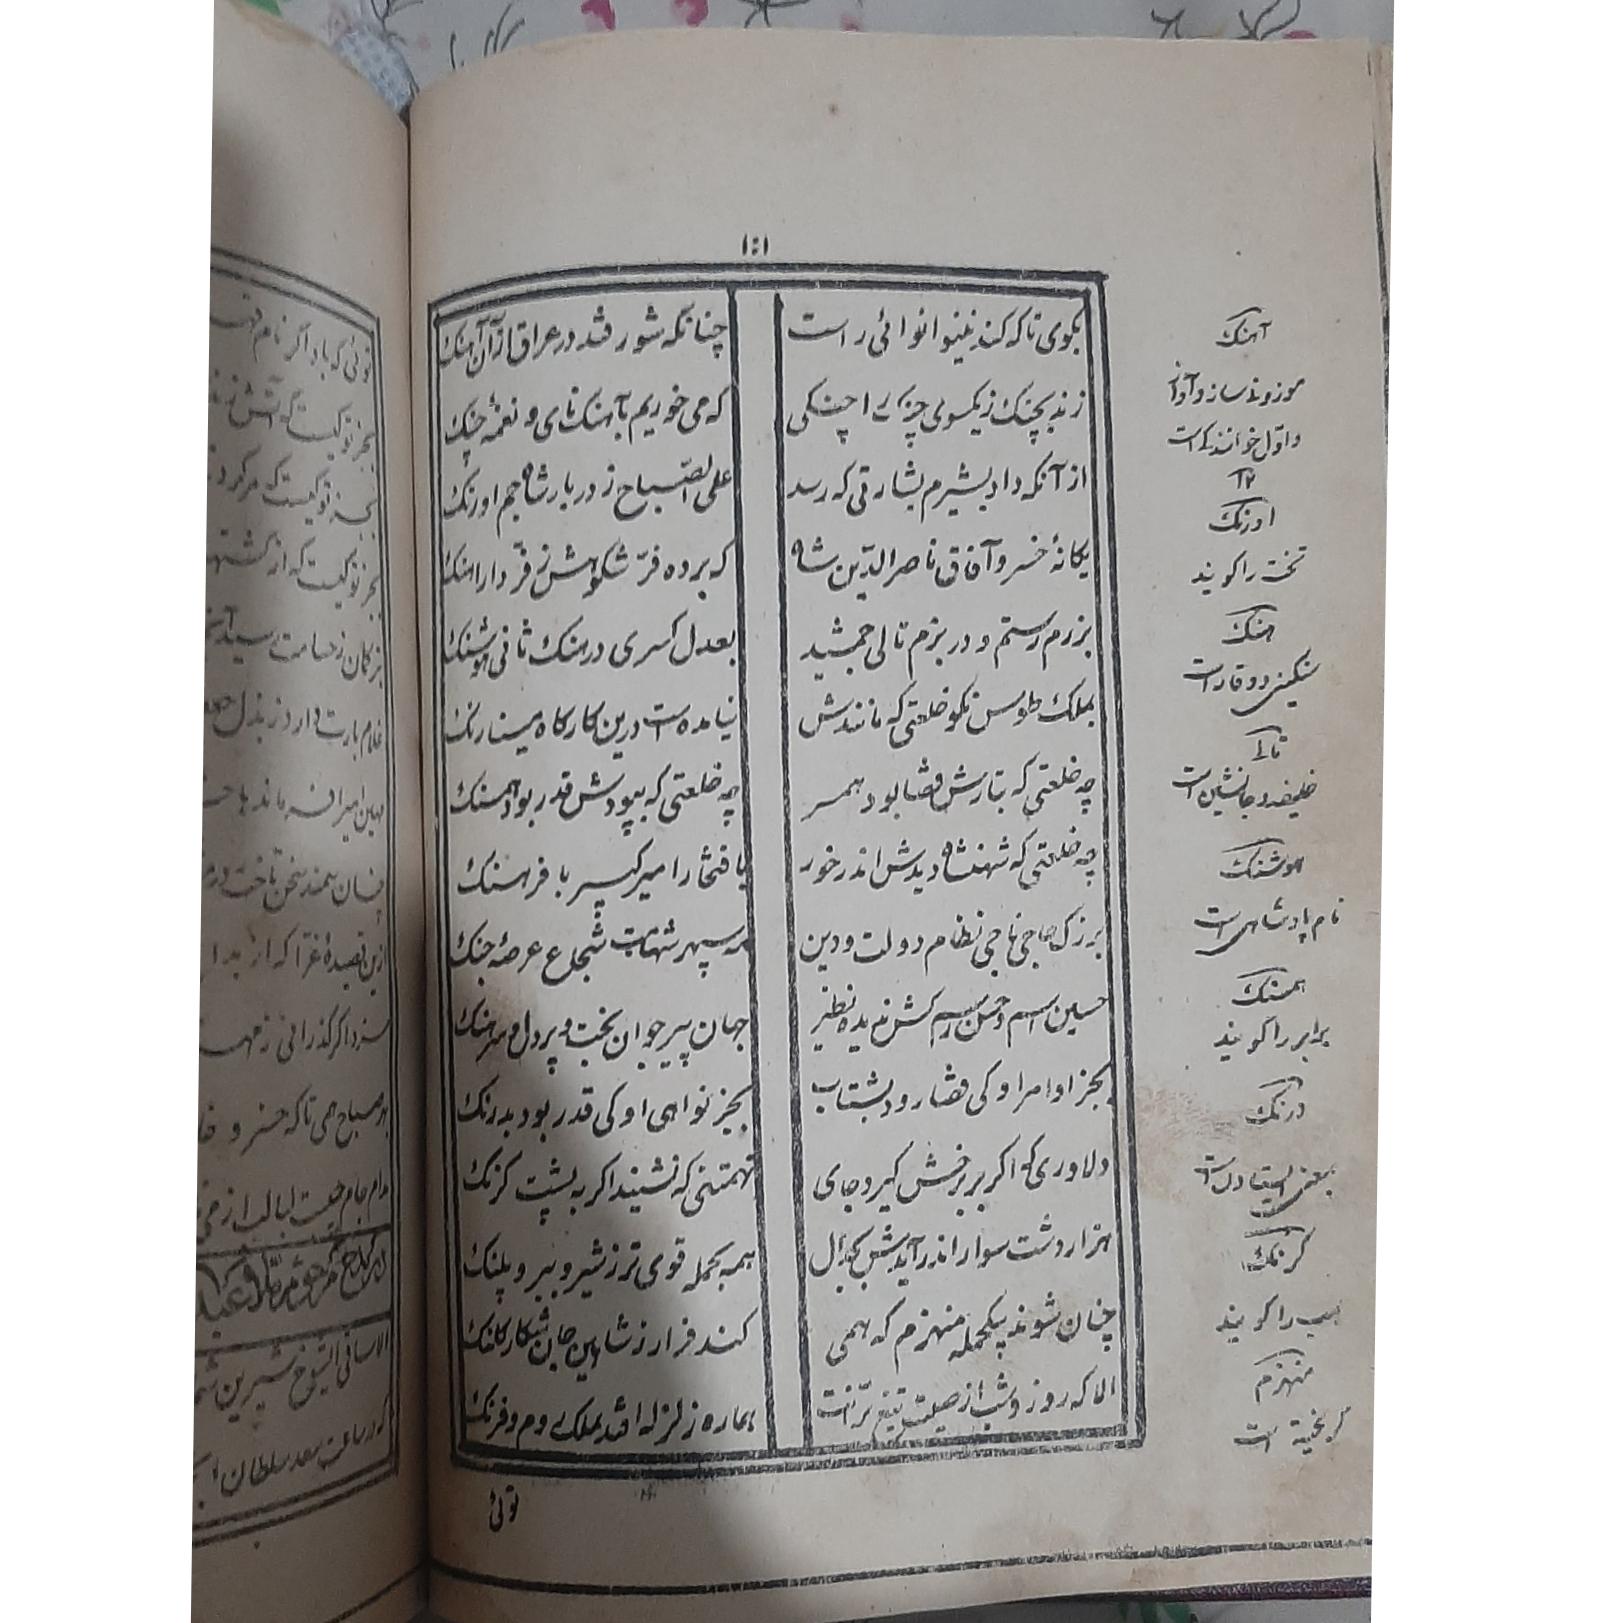 ۱۰۱
بکوی تا که کند نینوا نوائی راست
چنانکه شور فتد در عراق از آن آهنک
زند بچنک زیکسوی چنگی
که می خوریم بآهنک نای و نغمهٔ چنک
از آنکه داد بشیرم بشارتی که رسد
علی الصّباح ز دربار شاه جم اورنک
یکانهٔ خسرو آفاق ناصر الدّین شاه
که برده فرّ شکوهش ز فرّ دارا هنک
برزم رستم و در بزم تالی جمشید
بعدل کسری در هنک ثانی هوشنک
بملک طوس نکو خلعتی که مانندش
نیامده است درین کارکاه مینا رنک
چه خلعتی که بتارش قضا بود همسر
چه خلعتی که بپودش قدر بود همسنک
چه خلعتی که شهنشاه دیدش اندر خور
بافتخار امیر کبیر با فرهنک
بزرک حاجی ناجی نظام دولت و دین
مه سپهر شهامت شجاع عرصهٔ جنک
حسین اسم و حسن رسم کش ندیده نظیر
جهان پیر جوان بخت و پردل و سرهنک
بجز اوامر او کی قضا رود بشتاب
بجز نواهی او کی قدر بود بدرنک
دلاوری که اکر بر برخش کیرد جای
تهمتنی که نشیند اکر به پشت کرنک
هزار دشت سوار اندر آیدش بجدال
همه بحمله قوی تر ز شیر و ببر و پلنک
چنان شوند بیکحمله منهزم که همی
کند فرار ز شاهین جان شکار کلنک
الا که روز و شب از صیت تیغ برّانت
هماره زلزله افتد بملک روم و فرنک
توئی
آهنک
موزونی ساز و آواز
و اوّل خوانندکی است
۱۲
اورنک
تخت را کویند
هنک
سنکینی و وقار است
تالی
خلیفه و جانشین است
هوشنک
نام پادشاهی است
همسنک
برابر را کویند
درنک
بمعنی ایستادن است
کرنک
اسب را کویند
منهزم
کریخته است
توئی که باد اگر نام
بجز تو کیست که آتش زند
بجز تو کیست که
بجز تو کیست که از کشته
غلام بارت دارد ز بذل
چنان سمند سخن تاخت در
ازین قصیدهٔ غرّا که از
سزد اکر گذرانی ز
بهر صباح همی تا که خسرو
مدام جام حیت لبالب از می
الا ساقی شیرین
که در ساعت سعد سلطان